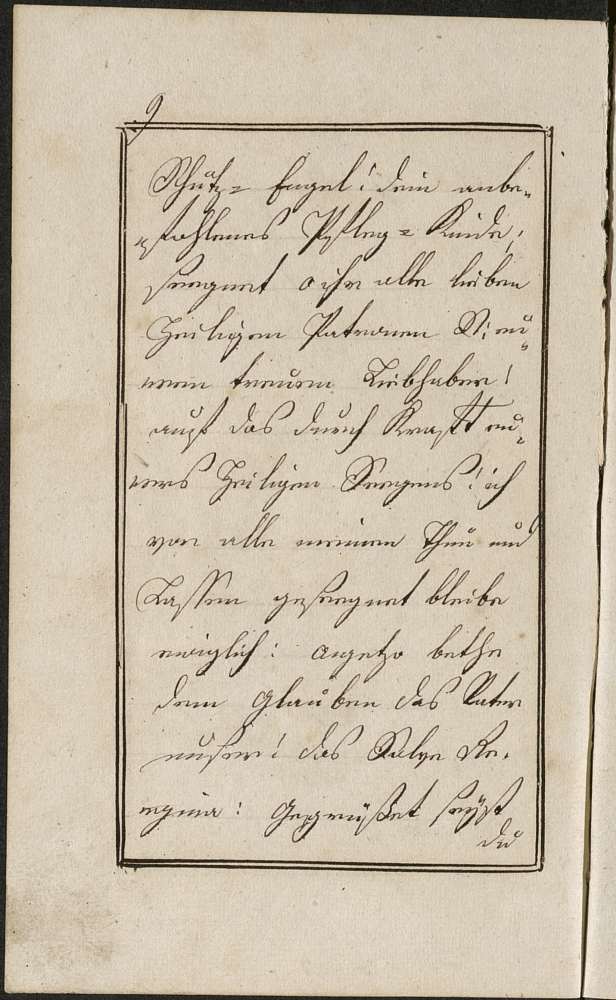 9
Schutz= Engel! dein anbe„
„fohlenes Pfleg= Kinde,
seegnet o ihr alle lieben
Heiligen Patronen St: eu„
rem treuem Liebhaber!
auf das durch Krafft eu„
rers Heiligen Seegens! ich
von alle meinem Thun und
Lassen geseegnet bleibe
ewiglich: anjetzo bethe
dem Glauben das Vater
unser! das Salve Re„
egina: Gegrüßet seyst
du